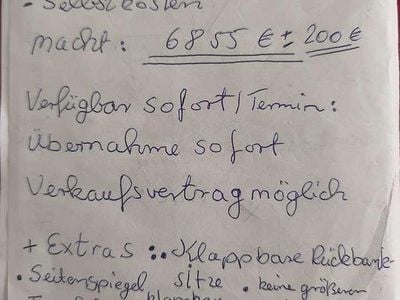 - Selbstkosten
macht: 6855 € ± 200 €
Verfügbar sofort/Termin:
Übernahme sofort
Verkaufsvertrag möglich
+ Extras :. Klappbare Rückbank-
• Seitenspiegel sitze • keine größeren
klappbar